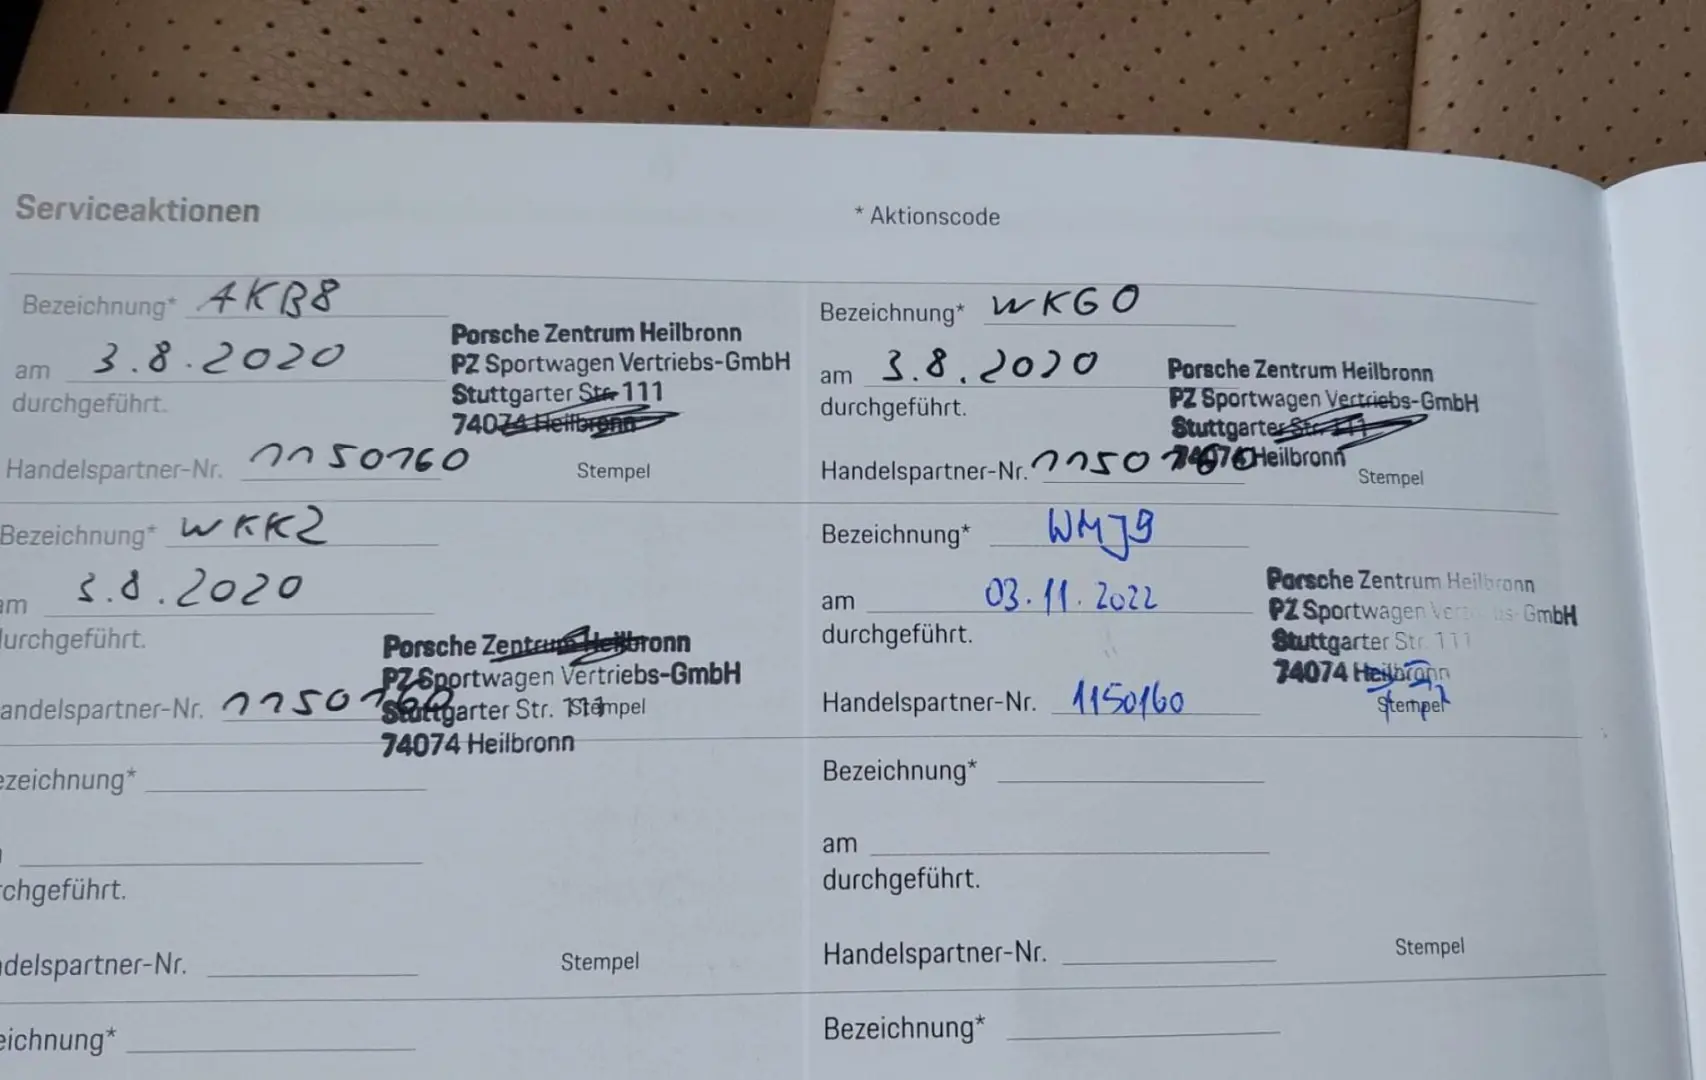 Serviceaktionen
* Aktionscode
Bezeichnung* AKB8
am 3.8.2020
durchgeführt.
Handelspartner-Nr. 1150160
Porsche Zentrum Heilbronn
PZ Sportwagen Vertriebs-GmbH
Stuttgarter Str. 111
74074 Heilbronn
Stempel
Bezeichnung* WKG0
am 3.8.2020
durchgeführt.
Handelspartner-Nr. 1150160
Porsche Zentrum Heilbronn
PZ Sportwagen Vertriebs-GmbH
Stuttgarter Str. 111
74074 Heilbronn
Stempel
Bezeichnung* WKK2
am 3.8.2020
durchgeführt.
andelspartner-Nr. 1150160
Porsche Zentrum Heilbronn
PZ Sportwagen Vertriebs-GmbH
Stuttgarter Str. 111
74074 Heilbronn
Stempel
Bezeichnung* WMJ9
am 03.11.2022
durchgeführt.
Handelspartner-Nr. 1150160
Porsche Zentrum Heilbronn
PZ Sportwagen Vertriebs-GmbH
Stuttgarter Str. 111
74074 Heilbronn
Stempel
ezeichnung*
chgeführt.
delspartner-Nr.
Stempel
Bezeichnung*
am
durchgeführt.
Handelspartner-Nr.
Stempel
eichnung*
Bezeichnung*